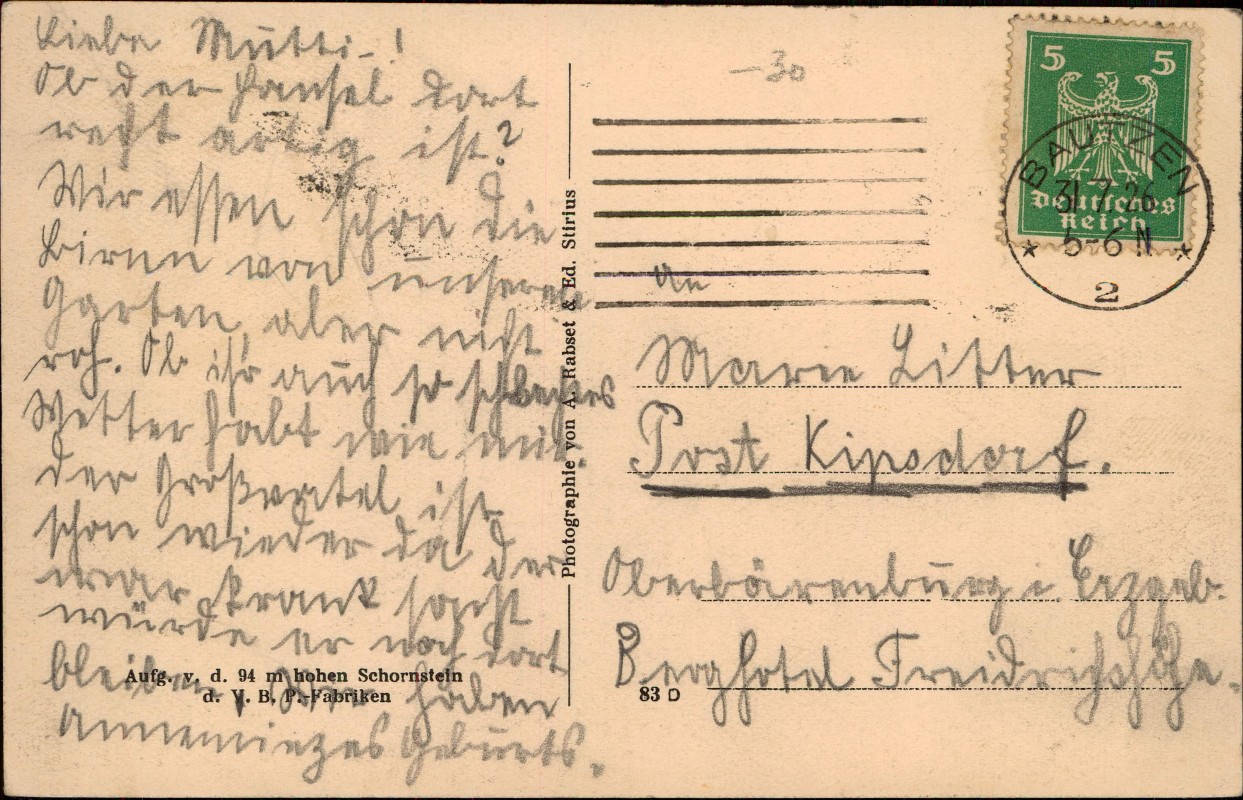 Liebe Mutti-!
Ob der Hansel dort
recht artig ist?
Wir essen schon die
Birnen von unserem
Garten, aber nicht
roh. Ob ihr auch so schlechtes
Wetter habt wie wir.
der Großvatel ist
schon wieder da der
war krank sonst
würde er noch dort
bleiben. Wir haben
Annemiezes Geburts.
Aufg. v. d. 94 m hohen Schornstein
d. V. B. P.-Fabriken
Photographie von A. Rabset & Ed. Stirius
-30
5 5
Deutsches
Reich
BAUTZEN
31.7.26
5-6 N
2
An
Litter
Post Kipsdorf.
Oberbärenburg i. Erzgeb.
Berghotel Freidrichshöhe.
83 D